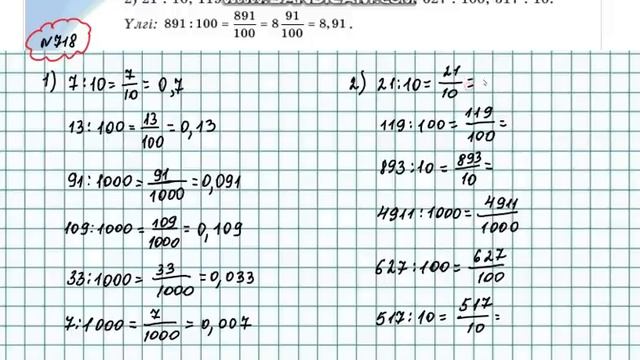 2) 21 : 10; 119
627 : 100; 517 : 10.
Үлгі: 891 : 100 = 891/100 = 8 91/100 = 8,91 .
№718
1) 7:10 = 7/10 = 0,7
13:100 = 13/100 = 0,13
91:1000 = 91/1000 = 0,091
109:1000 = 109/1000 = 0,109
33:1000 = 33/1000 = 0,033
7:1000 = 7/1000 = 0,007
2) 21:10 = 21/10 =
119:100 = 119/100 =
893:10 = 893/10 =
4911:1000 = 4911/1000
627:100 = 627/100
517:10 = 517/10 =